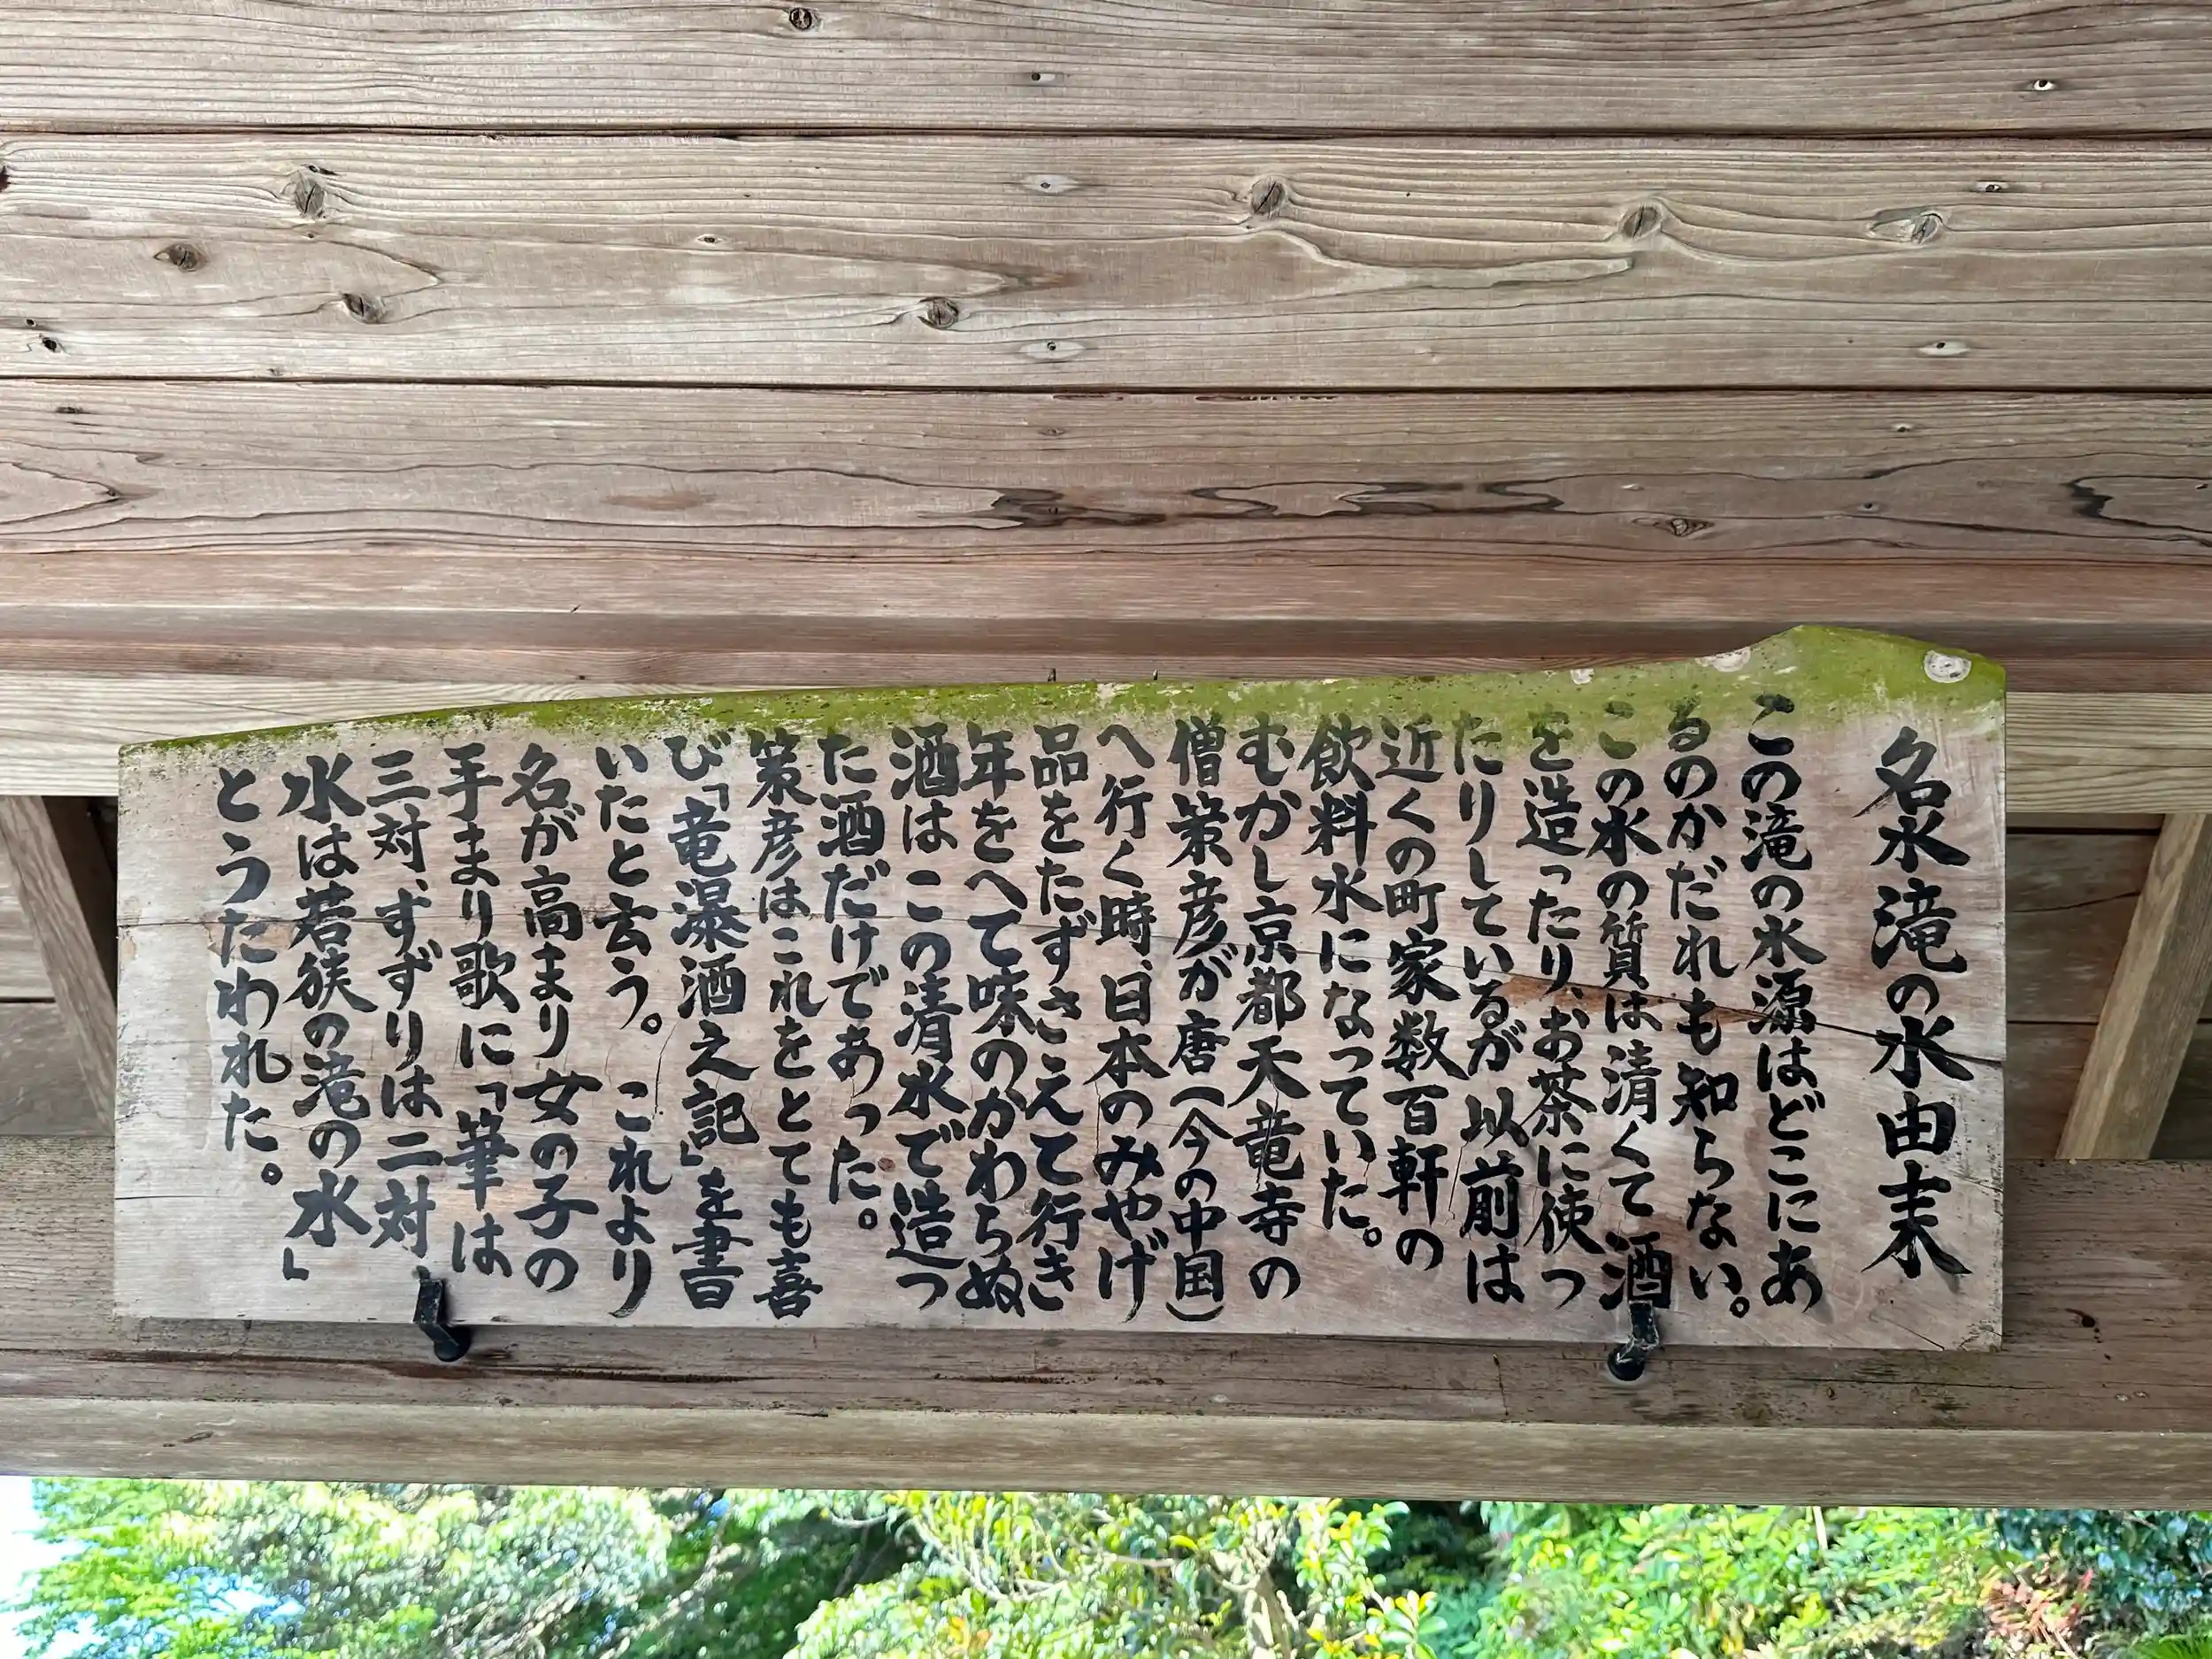 名水滝の水由来
この滝の水源はどこにあ
るのかだれも知らない。
この水の質は清くて酒
を造ったり、お茶に使っ
たりしているが以前は
近くの町家数百軒の
飲料水になっていた。
むかし京都天竜寺の
僧策彦が唐(今の中国)
へ行く時、日本のみやげ
品をたずさえて行き
年をへて味のかわらぬ
酒はこの清水で造っ
た酒だけであった。
策彦はこれをとても喜
び「竜瀑酒之記」を書
いたと云う。これより
名が高まり女の子の
手まり歌に「筆は
三対、すずりは二対、
水は若狭の滝の水」
とうたわれた。